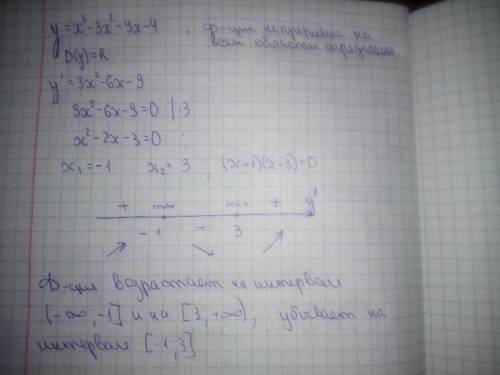 y = x³-3x²-9x-4 , ф-ция непрерывна на
всей области определения
D(y)=R
y' = 3x²-6x-9
3x²-6x-9=0 |:3
x²-2x-3=0 ;
x₁=-1 x₂= 3 ; (x+1)(x-3)=0
+ max min + y'
-1 - 3
Ф-ция возрастает на интервале
(-∞;-1] и на [3,+∞), убывает на
интервале [-1,3]